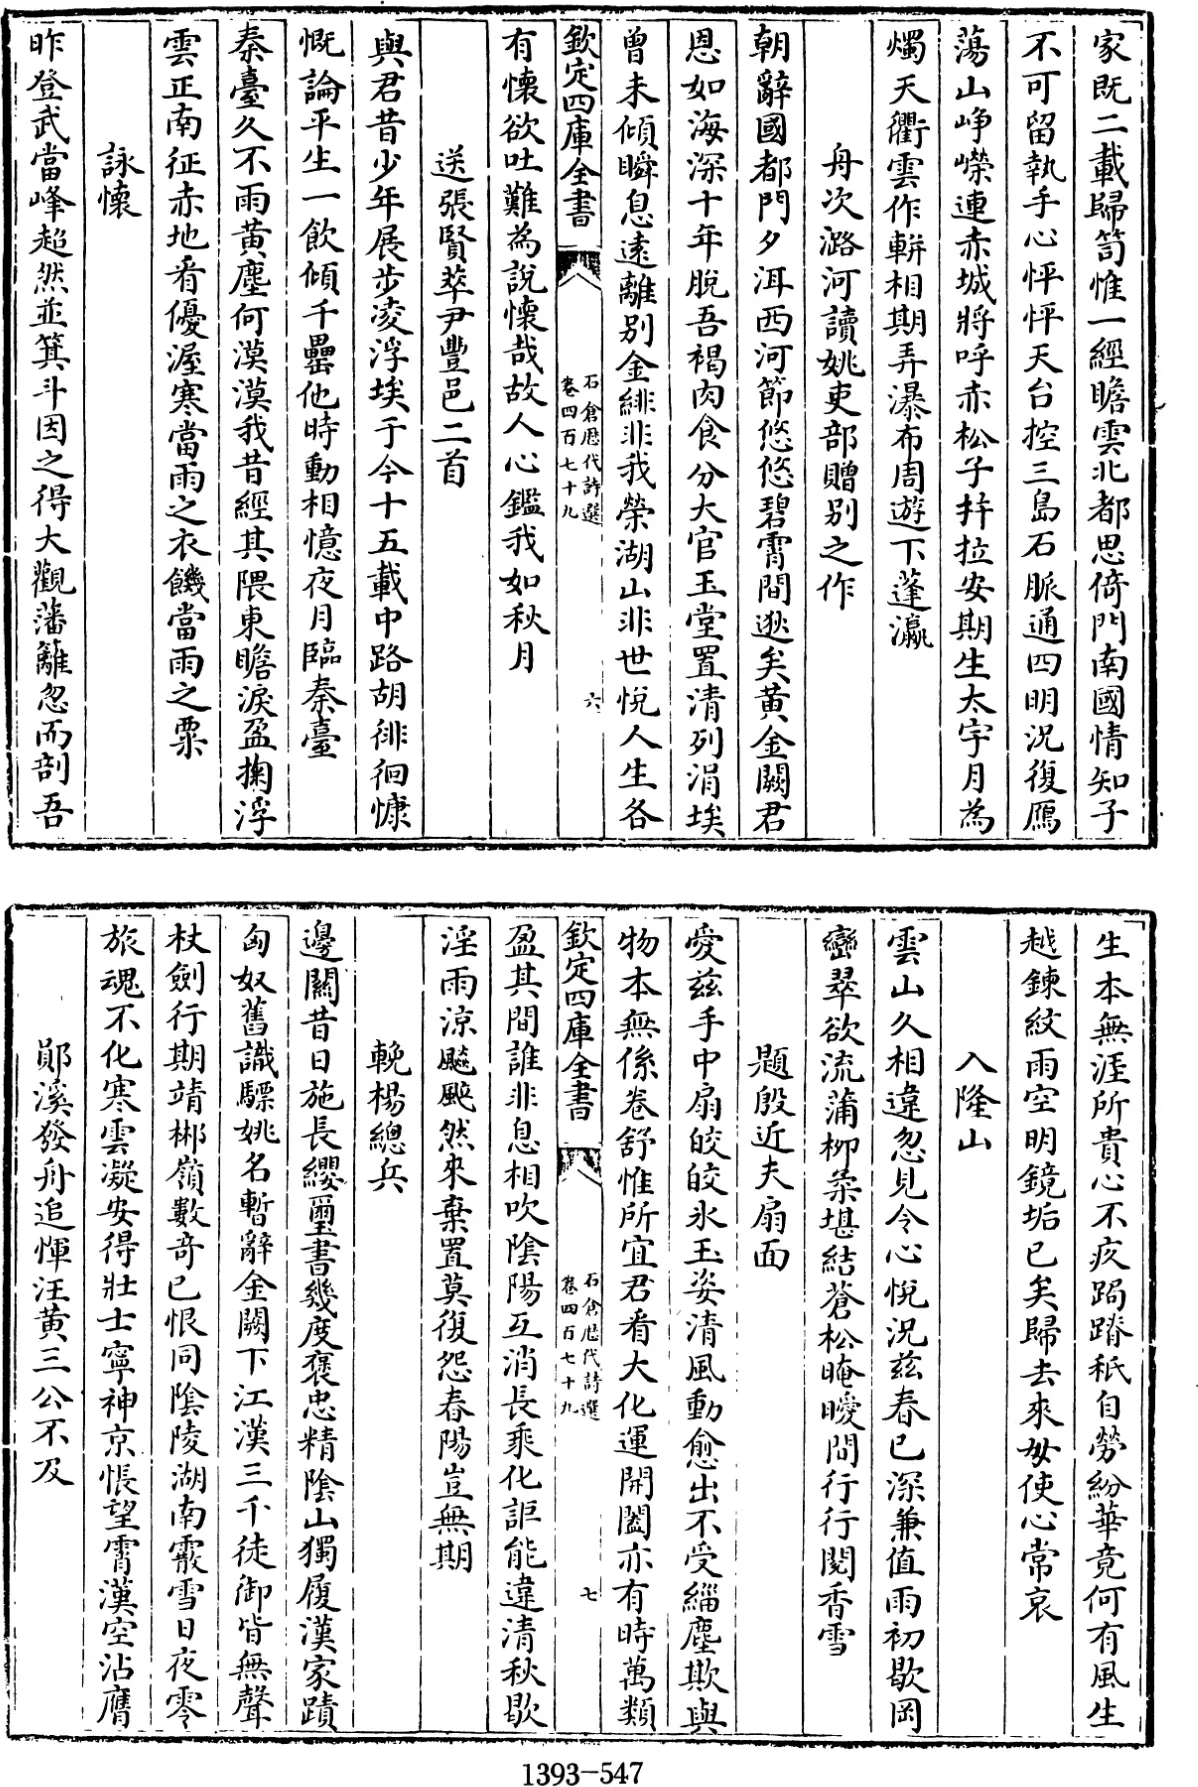 家既二載歸笥惟一經瞻雲北都思倚門南國情知子
不可留執手心怦怦天台控三島石脈通四明況復鴈
蕩山崢嶸連赤城將呼赤松子拉安期生太宇月為
燭天衢雲作軿相期弄瀑布周遊下蓬瀛
舟次潞河讀姚吏部贈别之作
朝辭國都門夕洱西河節悠悠碧霄間逖矣黄金闕君
恩如海深十年脫吾褐肉食分大官玉堂置清列涓埃
曾未傾瞬息遠離别金緋非我榮湖山非世悅人生各
欽定四庫全書
石倉歷代詩選
卷四百七十九
六
有懷欲吐難為說懷哉故人心鑑我如秋月
送張賢萃尹豐邑二首
與君昔少年展步凌浮埃于今十五載中路胡徘徊慷
慨論平生一飲傾千罍他時動相憶夜月臨秦臺
秦臺久不雨黄塵何漠漠我昔經其隈東瞻淚盈掬浮
雲正南征赤地看優渥寒當雨之衣饑當雨之粟
詠懷
昨登武當峰超然並箕斗因之得大觀藩籬忽而剖吾
生本無涯所貴心不疚跼蹐秪自勞紛華竟何有風生
越鍊紋雨空明鏡垢已矣歸去來毋使心常哀
入隆山
雲山久相違忽見令心悅況兹春已深兼值雨初歇岡
巒翠欲流蒲栁柔堪結蒼松晻曖間行行閱香雪
題殷近夫扇面
愛兹手中扇皎皎氷玉姿清風動愈出不受緇塵欺與
物本無係卷舒惟所宜君看大化運開闔亦有時萬類
欽定四庫全書
石倉歷代詩選
卷四百七十九
七
盈其間誰非息相吹陰陽互消長乘化詎能違清秋歇
淫雨涼飈颯然來棄置莫復怨春陽豈無期
輓楊總兵
邊關昔日施長纓璽書幾度褒忠精陰山獨履漢家蹟
匈奴舊識驃姚名暫辭金闕下江漢三千徒御皆無聲
杖劍行期靖郴嶺數竒已恨同陰陵湖南霰雪日夜零
旅魂不化寒雲凝安得壯士寧神京悵望霄漢空沾膺
鄖溪發舟追惲汪黄三公不及
1393-547